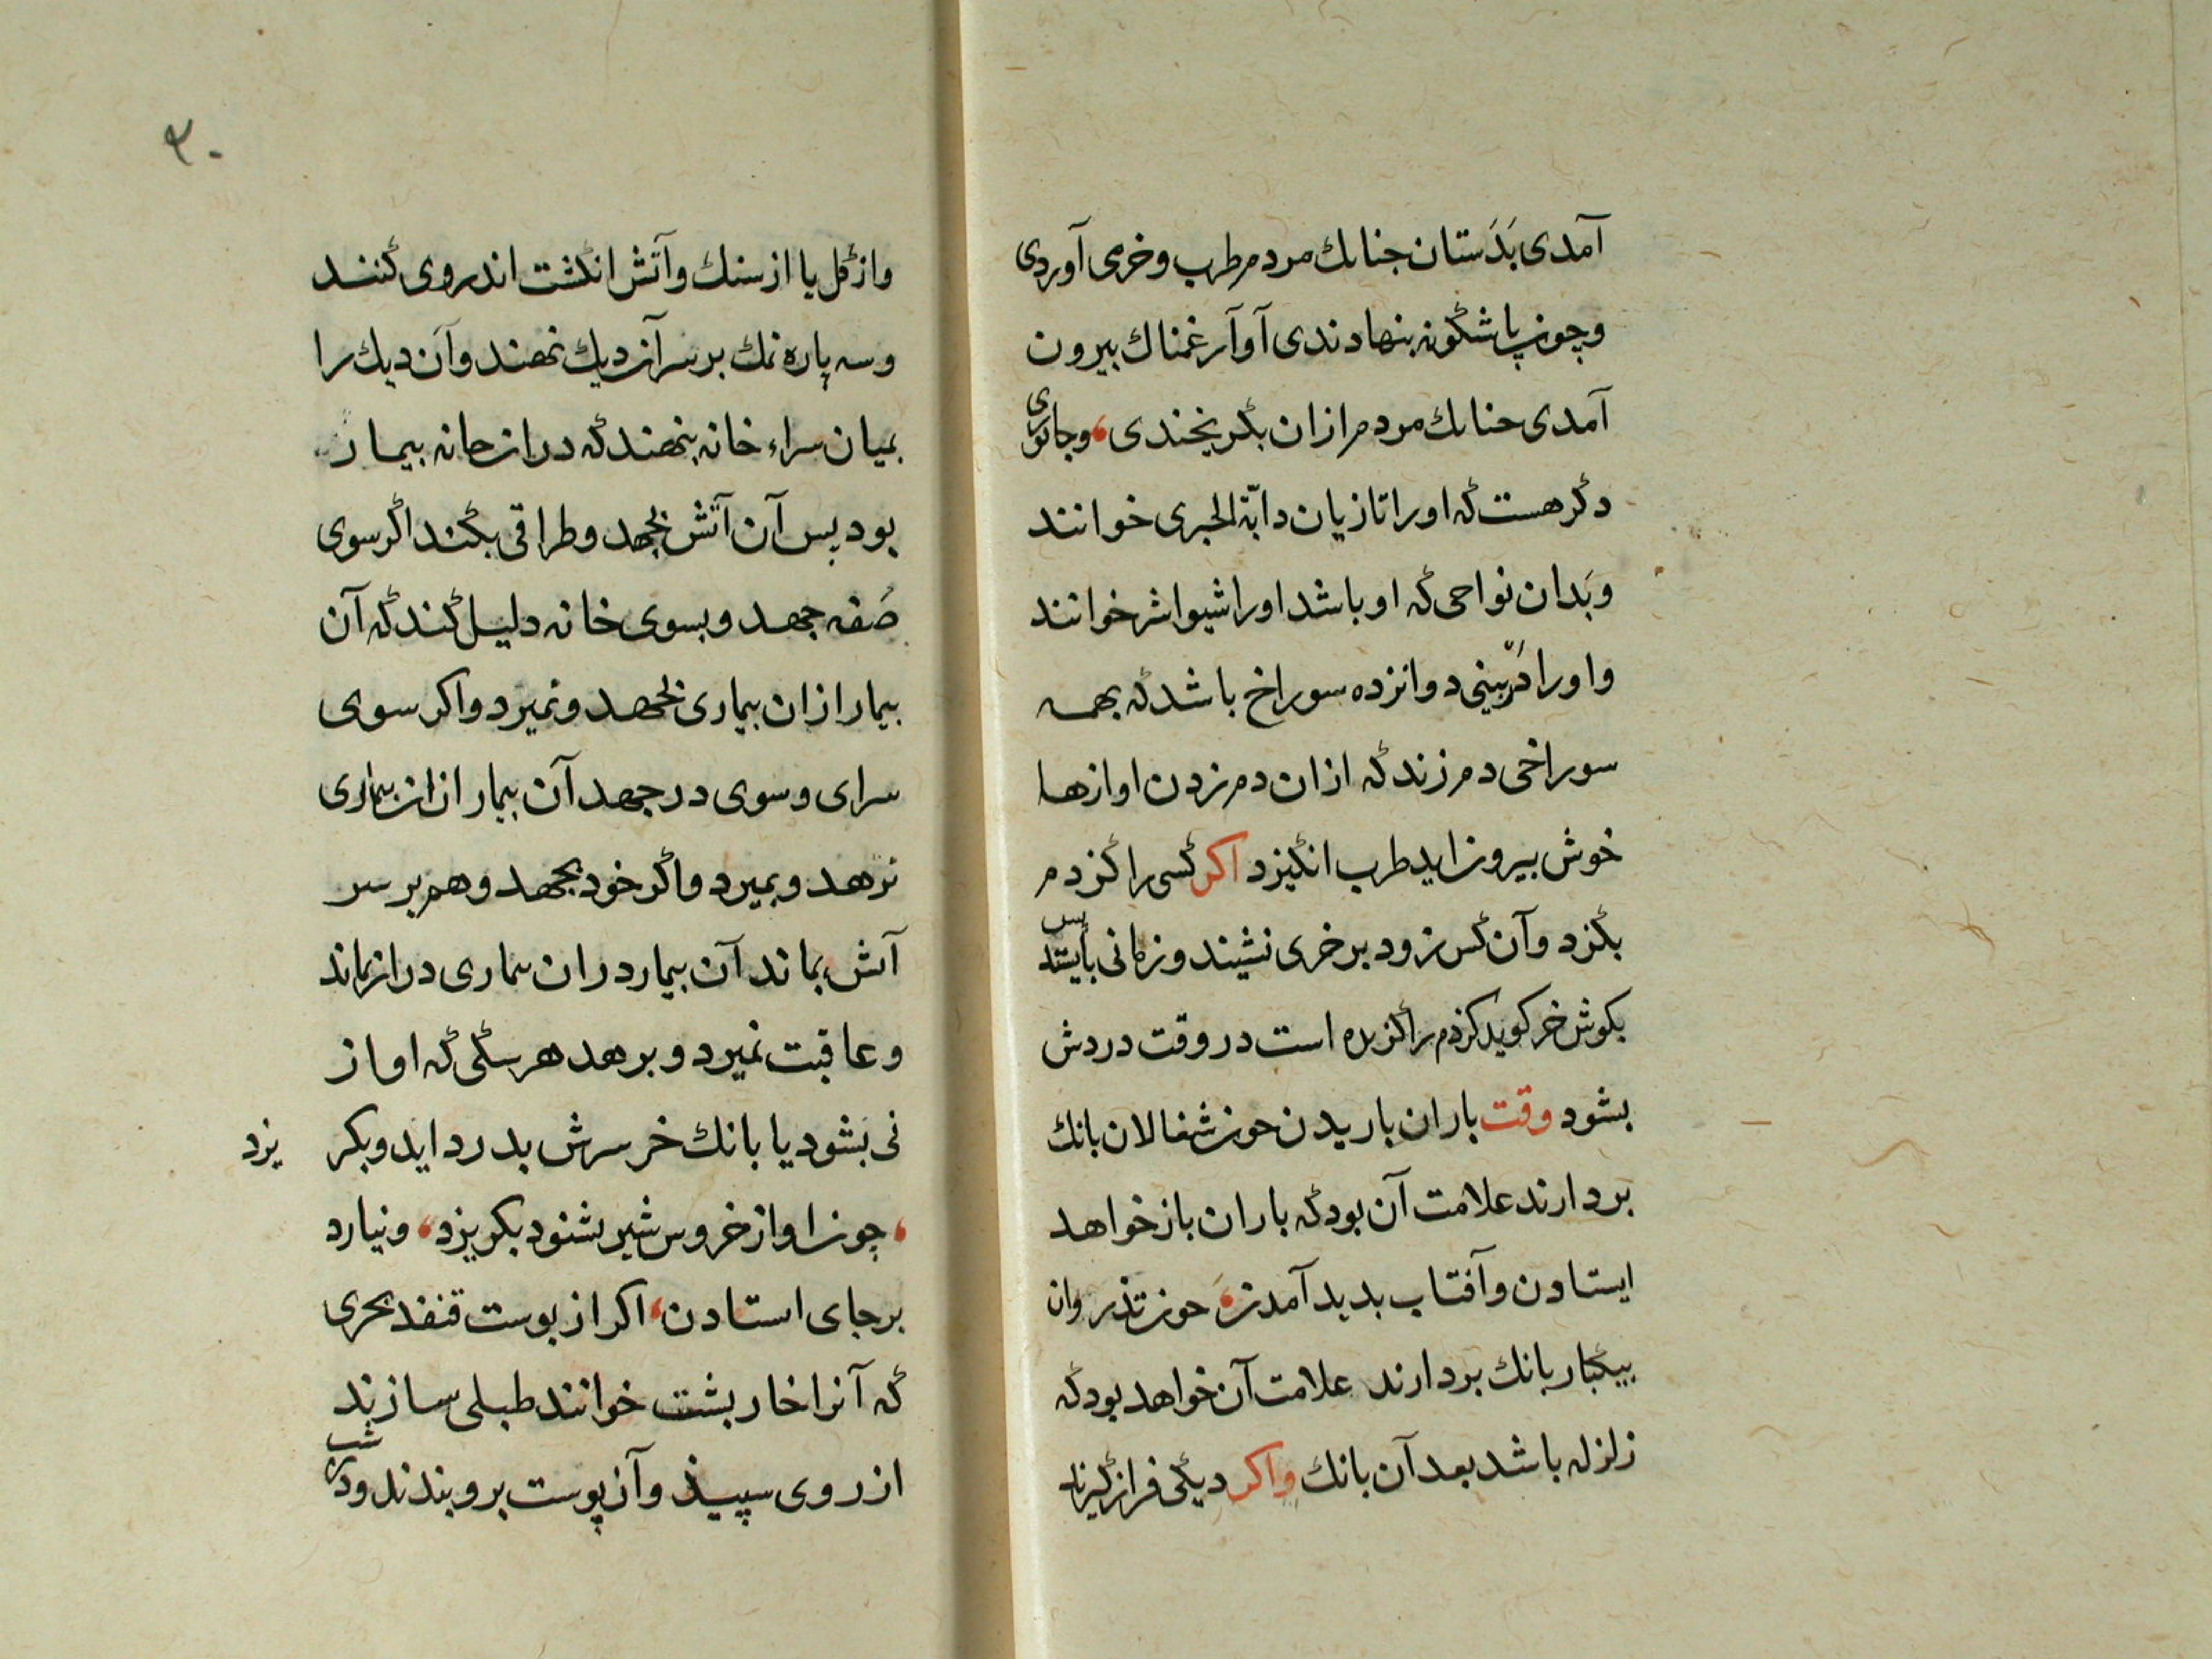 آمدی بَدَستان جنانك مردم طرب وخرمی آوردی
وچون پاشگونه بنهادندی آواز غمناك بیرون
آمدی جنانك مردم ازان بگریختندی، وجانوری
دگر هست که اورا تازیان دابّة الجبری خوانند
وبَدان نواحی که او باشد اورا شیواثر خوانند
واورا دَربینی دوانزده سوراخ باشد که بهمه
سوراخی دم زند که ازان دم زدن اوازها
خوش بیرون اید طرب انگیزد اکر کسی را کزدم
بگزد وآن کس زود برخری نشیند وزمانی بایستد پس
بکوش خر کوید کزدم مرا کزیده است در وقت دردش
بشود وقت باران باریدن جون شغالان بانك
بردارند علامت آن بود که باران بازخواهد
ایستادن وآفتاب بدید آمدن، جون تذروان
بیکبار بانك بردارند علامت آن خواهد بود که
زلزله باشد بعد آن بانك واکر دیگی فراز گیرند
۲۰
واز گل یا از سنك وآتش انگشت اندروی کنند
وسه پاره نمك بر سر آن دیك نهند وآن دیك را
بمیان سراء خانه بنهند که دران خانه بیمار
بود پس آن آتش بجهد وطراقی بکند اگر سوی
صُفه جهد وبسوی خانه دلیل کند که آن
بیمار ازان بیماری بجهد ونمیرد واکر سوی
سرای وسوی در جهد آن بیمار ازان بیماری
نرهد وبمیرد واگر خود بجهد وهم بر سر
آتش بماند آن بیمار دران بیماری دراز بماند
وعاقبت نمیرد وبرهد هر سگی که اواز
نی بشنود یا بانك خر سرش بدرد اید وبکر یزد
، چون اواز خروس شیر بشنود بکریزد، ونیارد
برجای استادن، اکر از پوست قنفذ بحری
که آنرا خارپشت خوانند طبلی سازند
از روی سپیذ وآن پوست برو بندند ودر شب